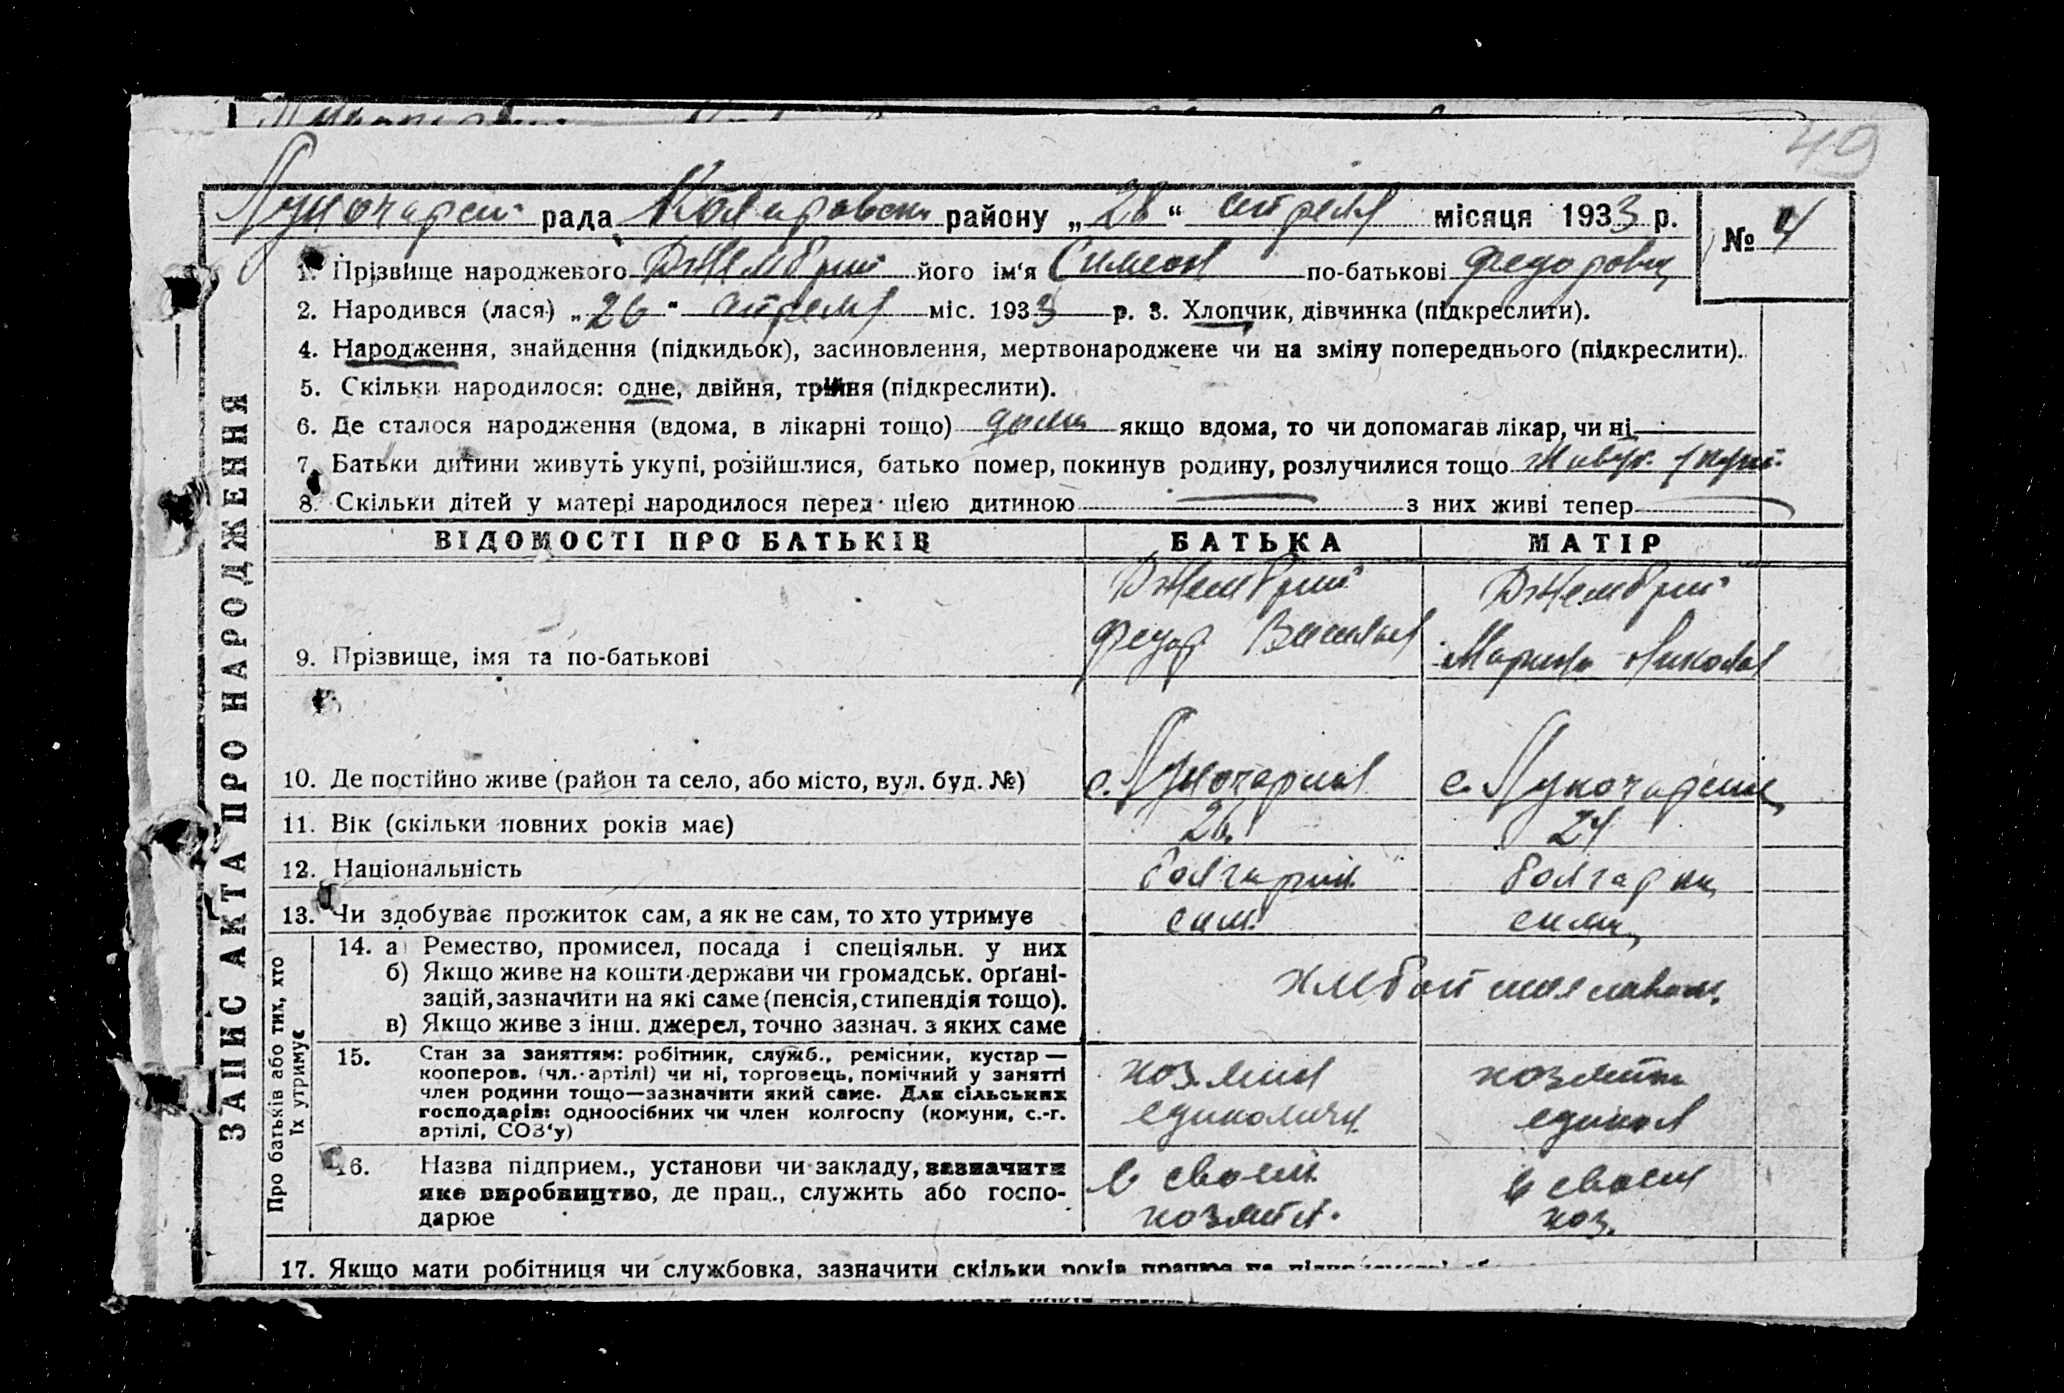 49
Луночарск рада Коларовск району „28“ апреля місяця 1933 р. № 4
1. Прізвище народженого Джембрий його ім‘я Симеон по-батькові Федоров
2. Народився (лася) „26“ апреля міс. 1933 р. 3. Хлопчик, дівчинка (підкреслити).
4. Народження, знайдення (підкидьок), засиновлення, мертвонароджене чи на зміну попереднього (підкреслити).
5. Скільки народилося: одне, двійня, трійня (підкреслити).
6. Де сталося народження (вдома, в лікарні тощо) дома якщо вдома, то чи допомагав лікар, чи ні
7. Батьки дитини живуть укупі, розійшлися, батько помер, покинув родину, розлучилися тощо живут укупі
8. Скільки дітей у матері народилося перед цією дитиною — з них живі тепер —
ЗАПИС АКТА ПРО НАРОДЖЕННЯ
ВІДОМОСТІ ПРО БАТЬКІВ БАТЬКА МАТІР
9. Прізвище, імя та по-батькові
Джембрий
Федор Василев
Джембрий
Марина Николов
10. Де постійно живе (район та село, або місто, вул. буд. №) с. Луночарск с. Луночарск
11. Вік (скільки повних років має) 26. 24
12. Національність болгарин болгарка
13. Чи здобуває прожиток сам, а як не сам, то хто утримує сам. сама
Про батьків або тих, хто їх утримує
14. а) Ремество, промисел, посада і спеціяльн. у них
б) Якщо живе на кошти держави чи громадськ. орґані-
зацій, зазначити на які саме (пенсія, стипендія тощо).
в) Якщо живе з інш. джерел, точно зазнач. з яких саме
15. Стан за заняттям: робітник, служб., ремісник, кустар —
кооперов. (чл. артілі) чи ні, торговець, помічний у занятті
член родини тощо—зазначити який саме. Для сільських
господарів: одноосібних чи член колгоспу (комуни, с.-г.
артілі, СОЗ‘у)
хозяин
единолич.
хозяйк
единол
16. Назва підприєм., установи чи закладу, зазначити
яке виробництво, де прац., служить або госпо-
дарює
в своем
хозяйст.
в своем
хоз.
17. Якщо мати робітниця чи службовка, зазначити скільки років працює на